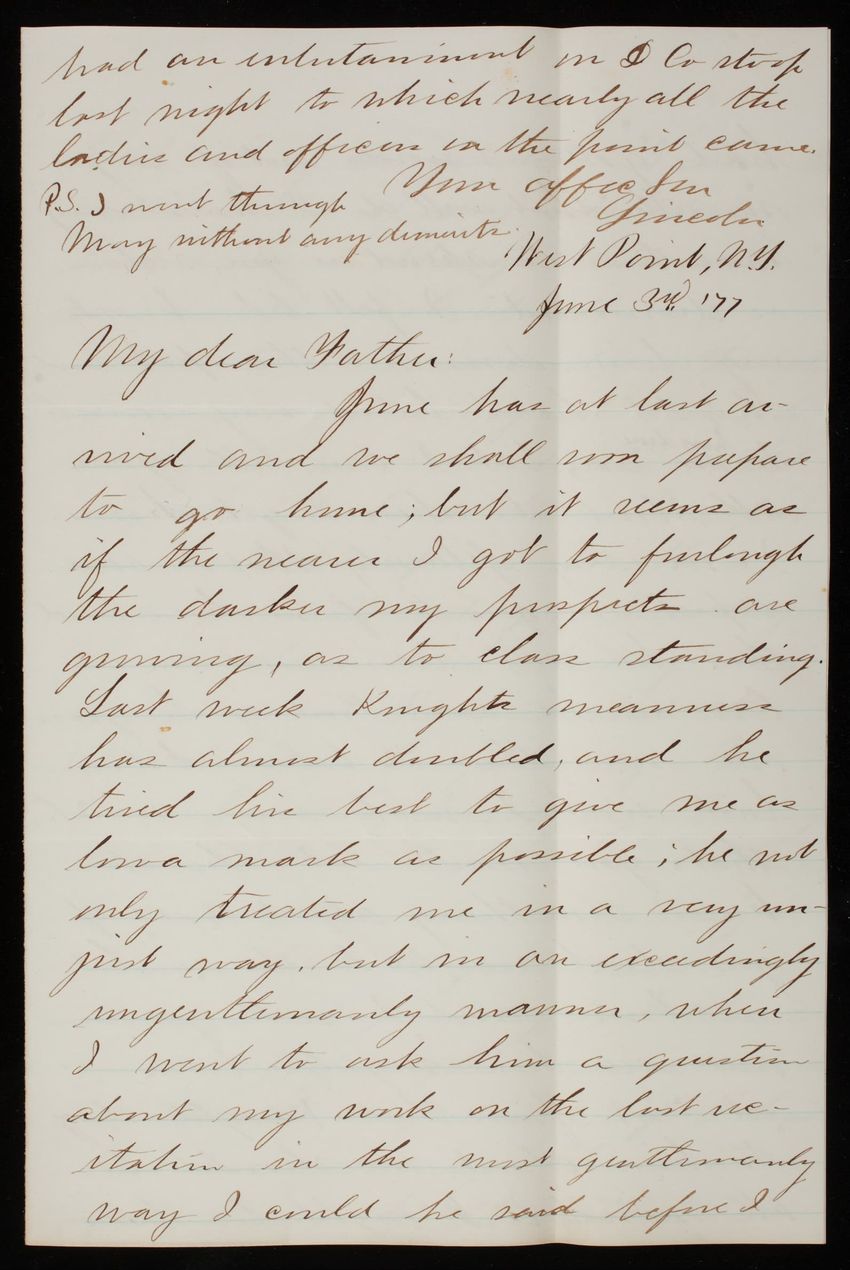 had an entertainment on D Co stoop
last night to which nearly all the
ladies and officers on the point came.
Your affec Son
Lincoln
P.S. I went through
May without any demerits.
West Point, N.Y.
June 3rd, '77
My dear Father:
June has at last ar-
rived and we shall soon prepare
to go home; but it seems as
if the nearer I got to furlough
the darker my prospects are
growing, as to class standing.
Last week Knights meanness
has almost doubled, and he
tried his best to give me as
low a mark as possible; he not
only treated me in a very un-
just way, but in an exceedingly
ungentlemanly manner, when
I went to ask him a question
about my work on the last rec-
itation in the most gentlemanly
way I could he said before I